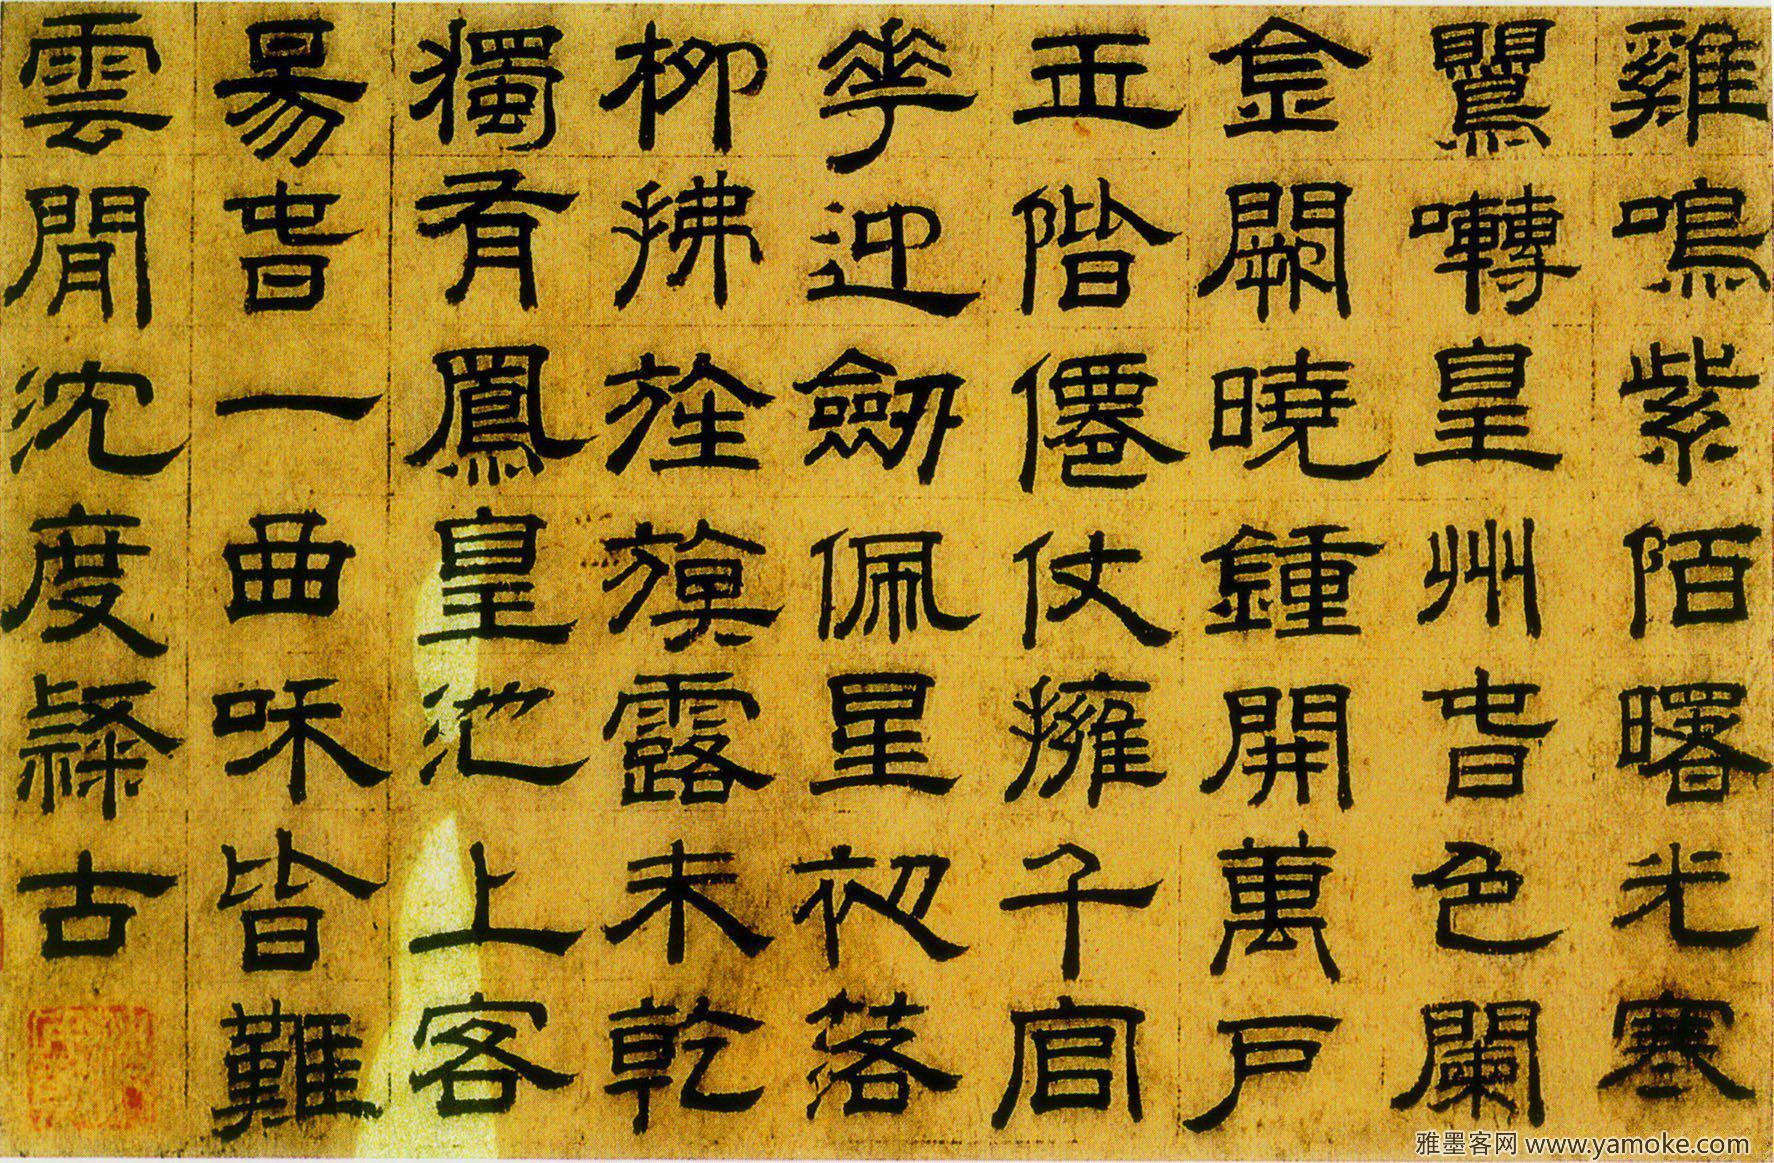 雞鳴紫陌曙光寒
鸎囀皇州萅色闌
金闕曉鍾開萬戶
玉階僊仗擁千官
華迎劒佩星初落
柳拂旌旗露未乾
獨有鳳皇池上客
昜萅一曲咊皆難
雲閒沈度隸古
雅墨客网 www.yamoke.com